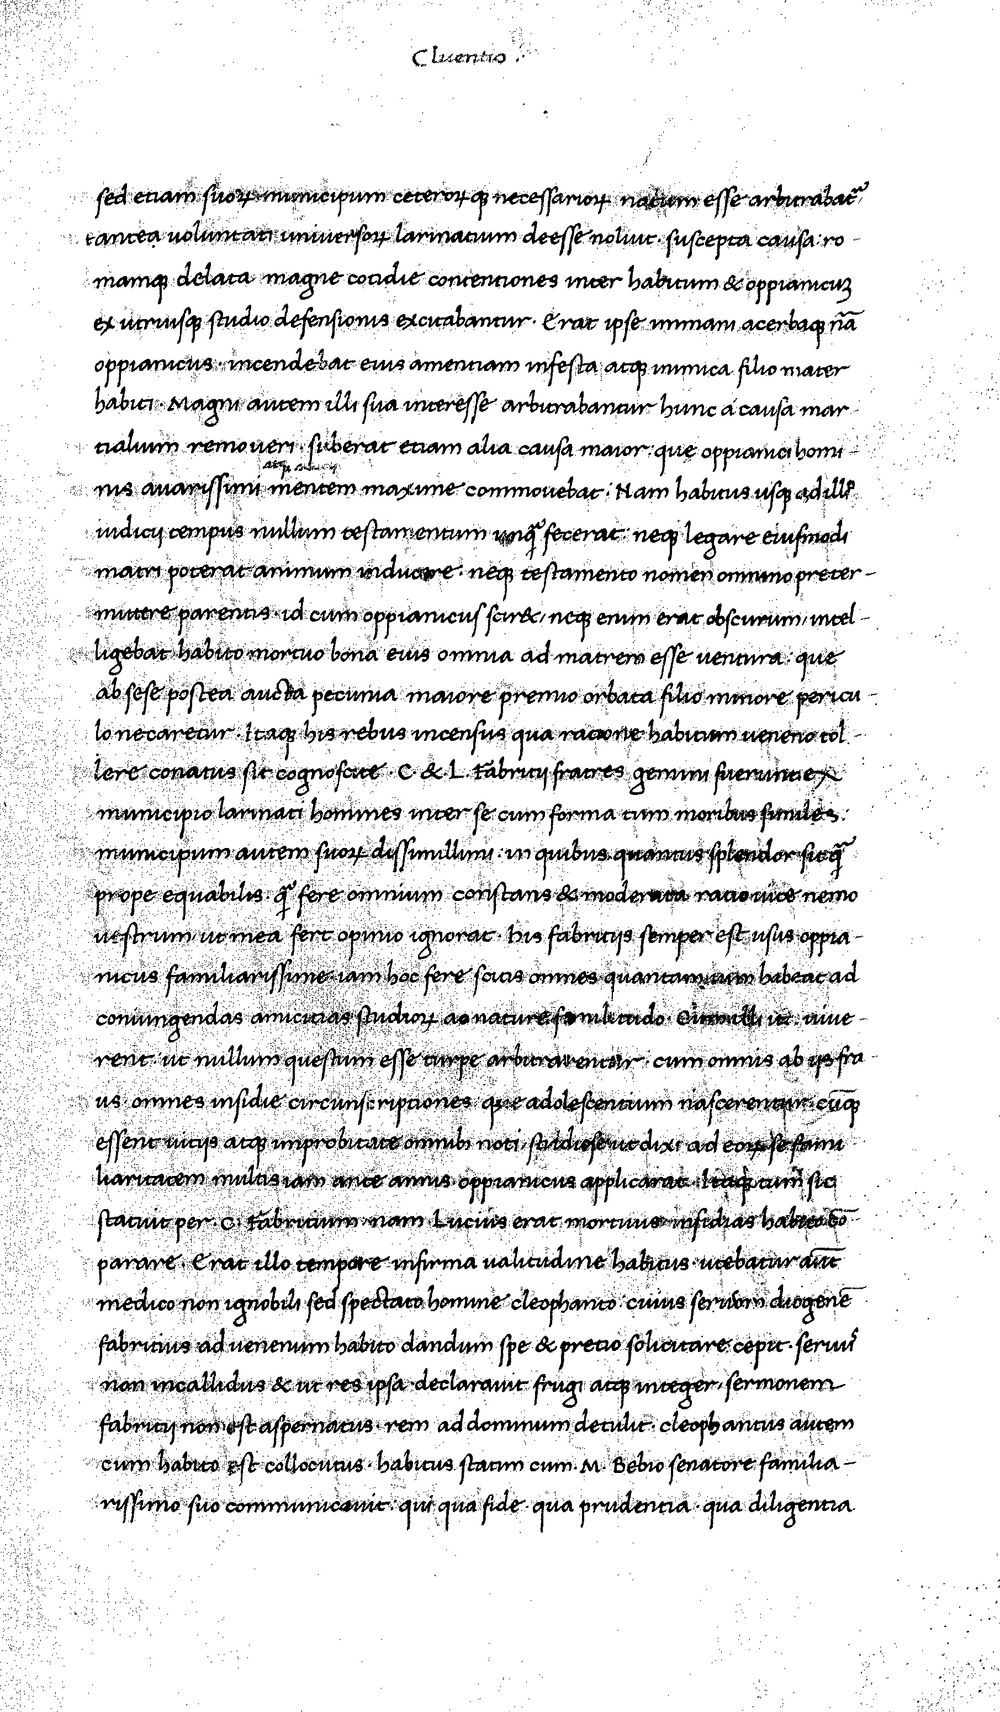 Cluentio
sed etiam suoꝝ municipum ceteroꝝqꝫ necessarioꝝ natum esse arbitrabat᷑
tantea voluntati universoꝝ larinatium deesse noluit. suscepta causa ro-
mamqꝫ delata magne cotidie contentiones inter habitum & oppianicuꝫ
ex utriusqꝫ studio defensionis excitabantur. Erat ipse immani acerbaqꝫ nā
oppianicus. incendebat eius amentiam infesta atqꝫ inimica filio mater
habiti. Magni autem illi sua interesse arbitrabantur hunc a causa mar
tialium removeri. suberat etiam alia causa maior que oppianici homi-
nis avarissimi mentem maxime commovebat. Nam habitus usqꝫ ad illᷣ
iudicij tempus nullum testamentum unq̄ fecerat. neqꝫ legare eiusmodi
matri poterat animum inducere. neqꝫ testamento nomen omnino preter-
mittere parentis. id cum oppianicus scir&, neqꝫ enim erat obscurum, intel-
ligebat habito mortuo bona eius omnia ad matrem esse ventura. que
ab sese postea aucta pecunia maiore premio orbata filio minore pericu-
lo necaretur. Itaqꝫ his rebus incensus qua racione habitum veneno tol-
lere conatus sit cognoscite. C & L fabritij fratres gemini fuerunt ex
municipio larinati homines inter se cum forma tum moribus similes.
municipum autem suoꝝ dissimillimi. in quibus quantus splendor sit q̄
prope equabilis q̄ fere omnium constans & moderata ratio vite nemo
vestrum ut mea fert opinio ignorat. his fabritijs semper est usus oppia-
nicus familiarissime. iam hoc fere scitis omnes quantam vim habeat ad
coniungendas amicitias studioꝝ ac nature similitudo. Cum illi ita vive-
rent. ut nullum questum esse turpe arbitrarentur. cum omnis ab ijs fra
us omnes insidie circunscriptiones que adolescentium nascerentur. cūqꝫ
essent vitijs atqꝫ improbitate omnibꝫ noti, studiose ut dixi ad eoꝝ se fami
liaritatem multis iam ante annis oppianicus applicarat. Itaqꝫ tum sic
statuit per C. fabritium nam Lucius erat mortuus insidias habito cō-
parare. Erat illo tempore infirma valitudine habitus. utebatur aūt
medico non ignobili sed spectato homine cleophanto cuius servum diogenē
fabritius ad venenum habito dandum spe & precio solicitare cepit. servuᷤ
non incallidus & ut res ipsa declaravit frugi atqꝫ integer, sermonem
fabritij non est aspernatus. rem ad dominum detulit. cleophantus autem
cum habito est collocutus. habitus statim cum M. Bebio senatore familia-
rissimo suo communicavit. qui qua fide qua prudentia qua diligentia